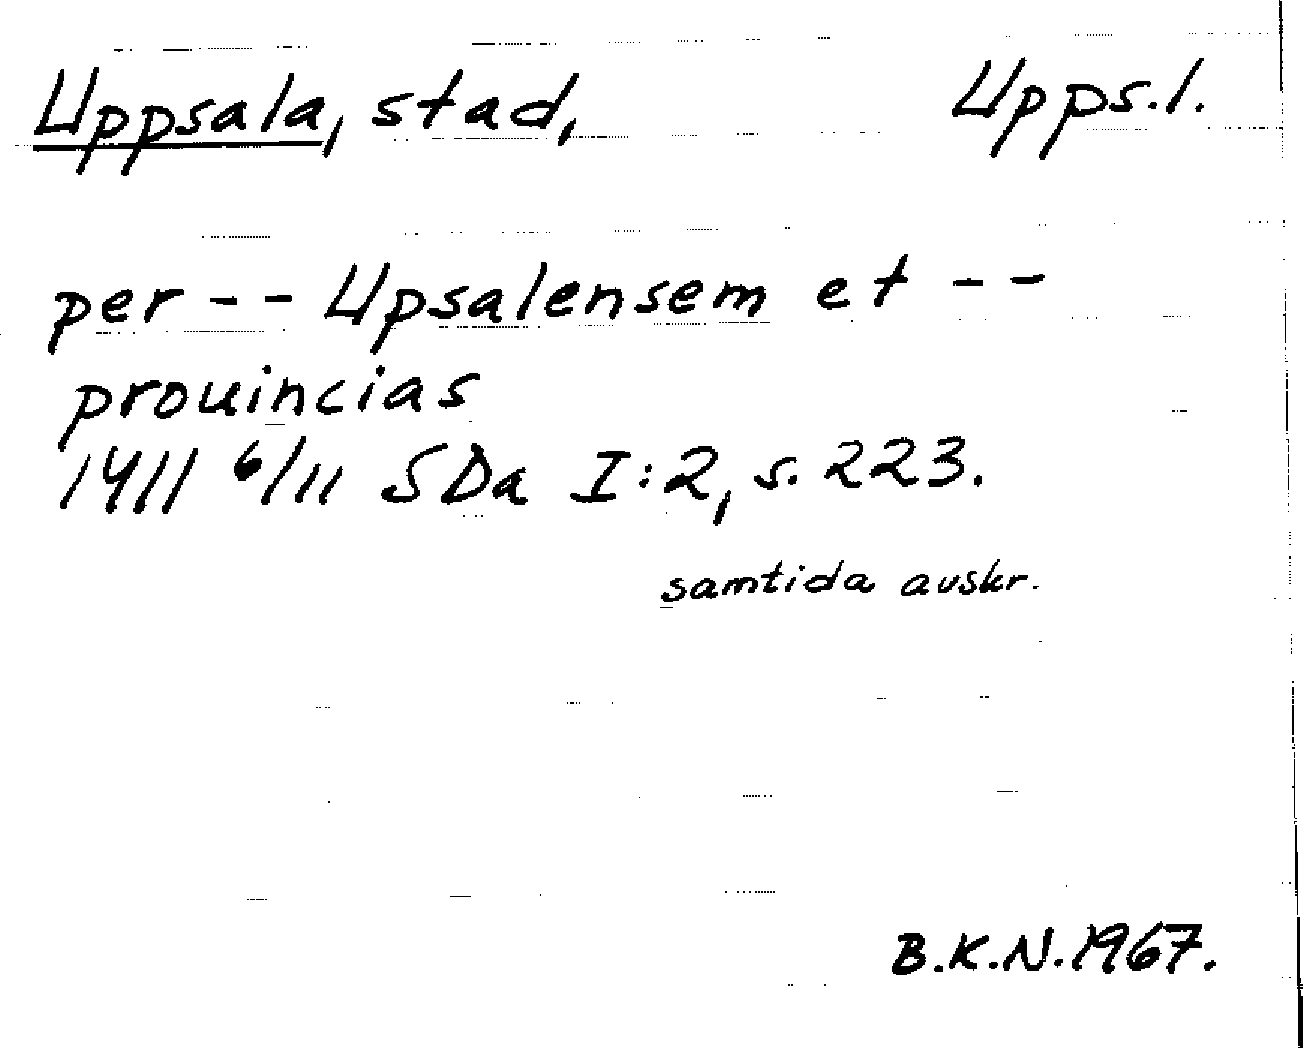 Uppsala, stad, Upps.l.
per -- Upsalensem et --
prouincias
1411 6/11 SDa I:2, s. 223.
samtida avskr.
B.K.N. 1967.